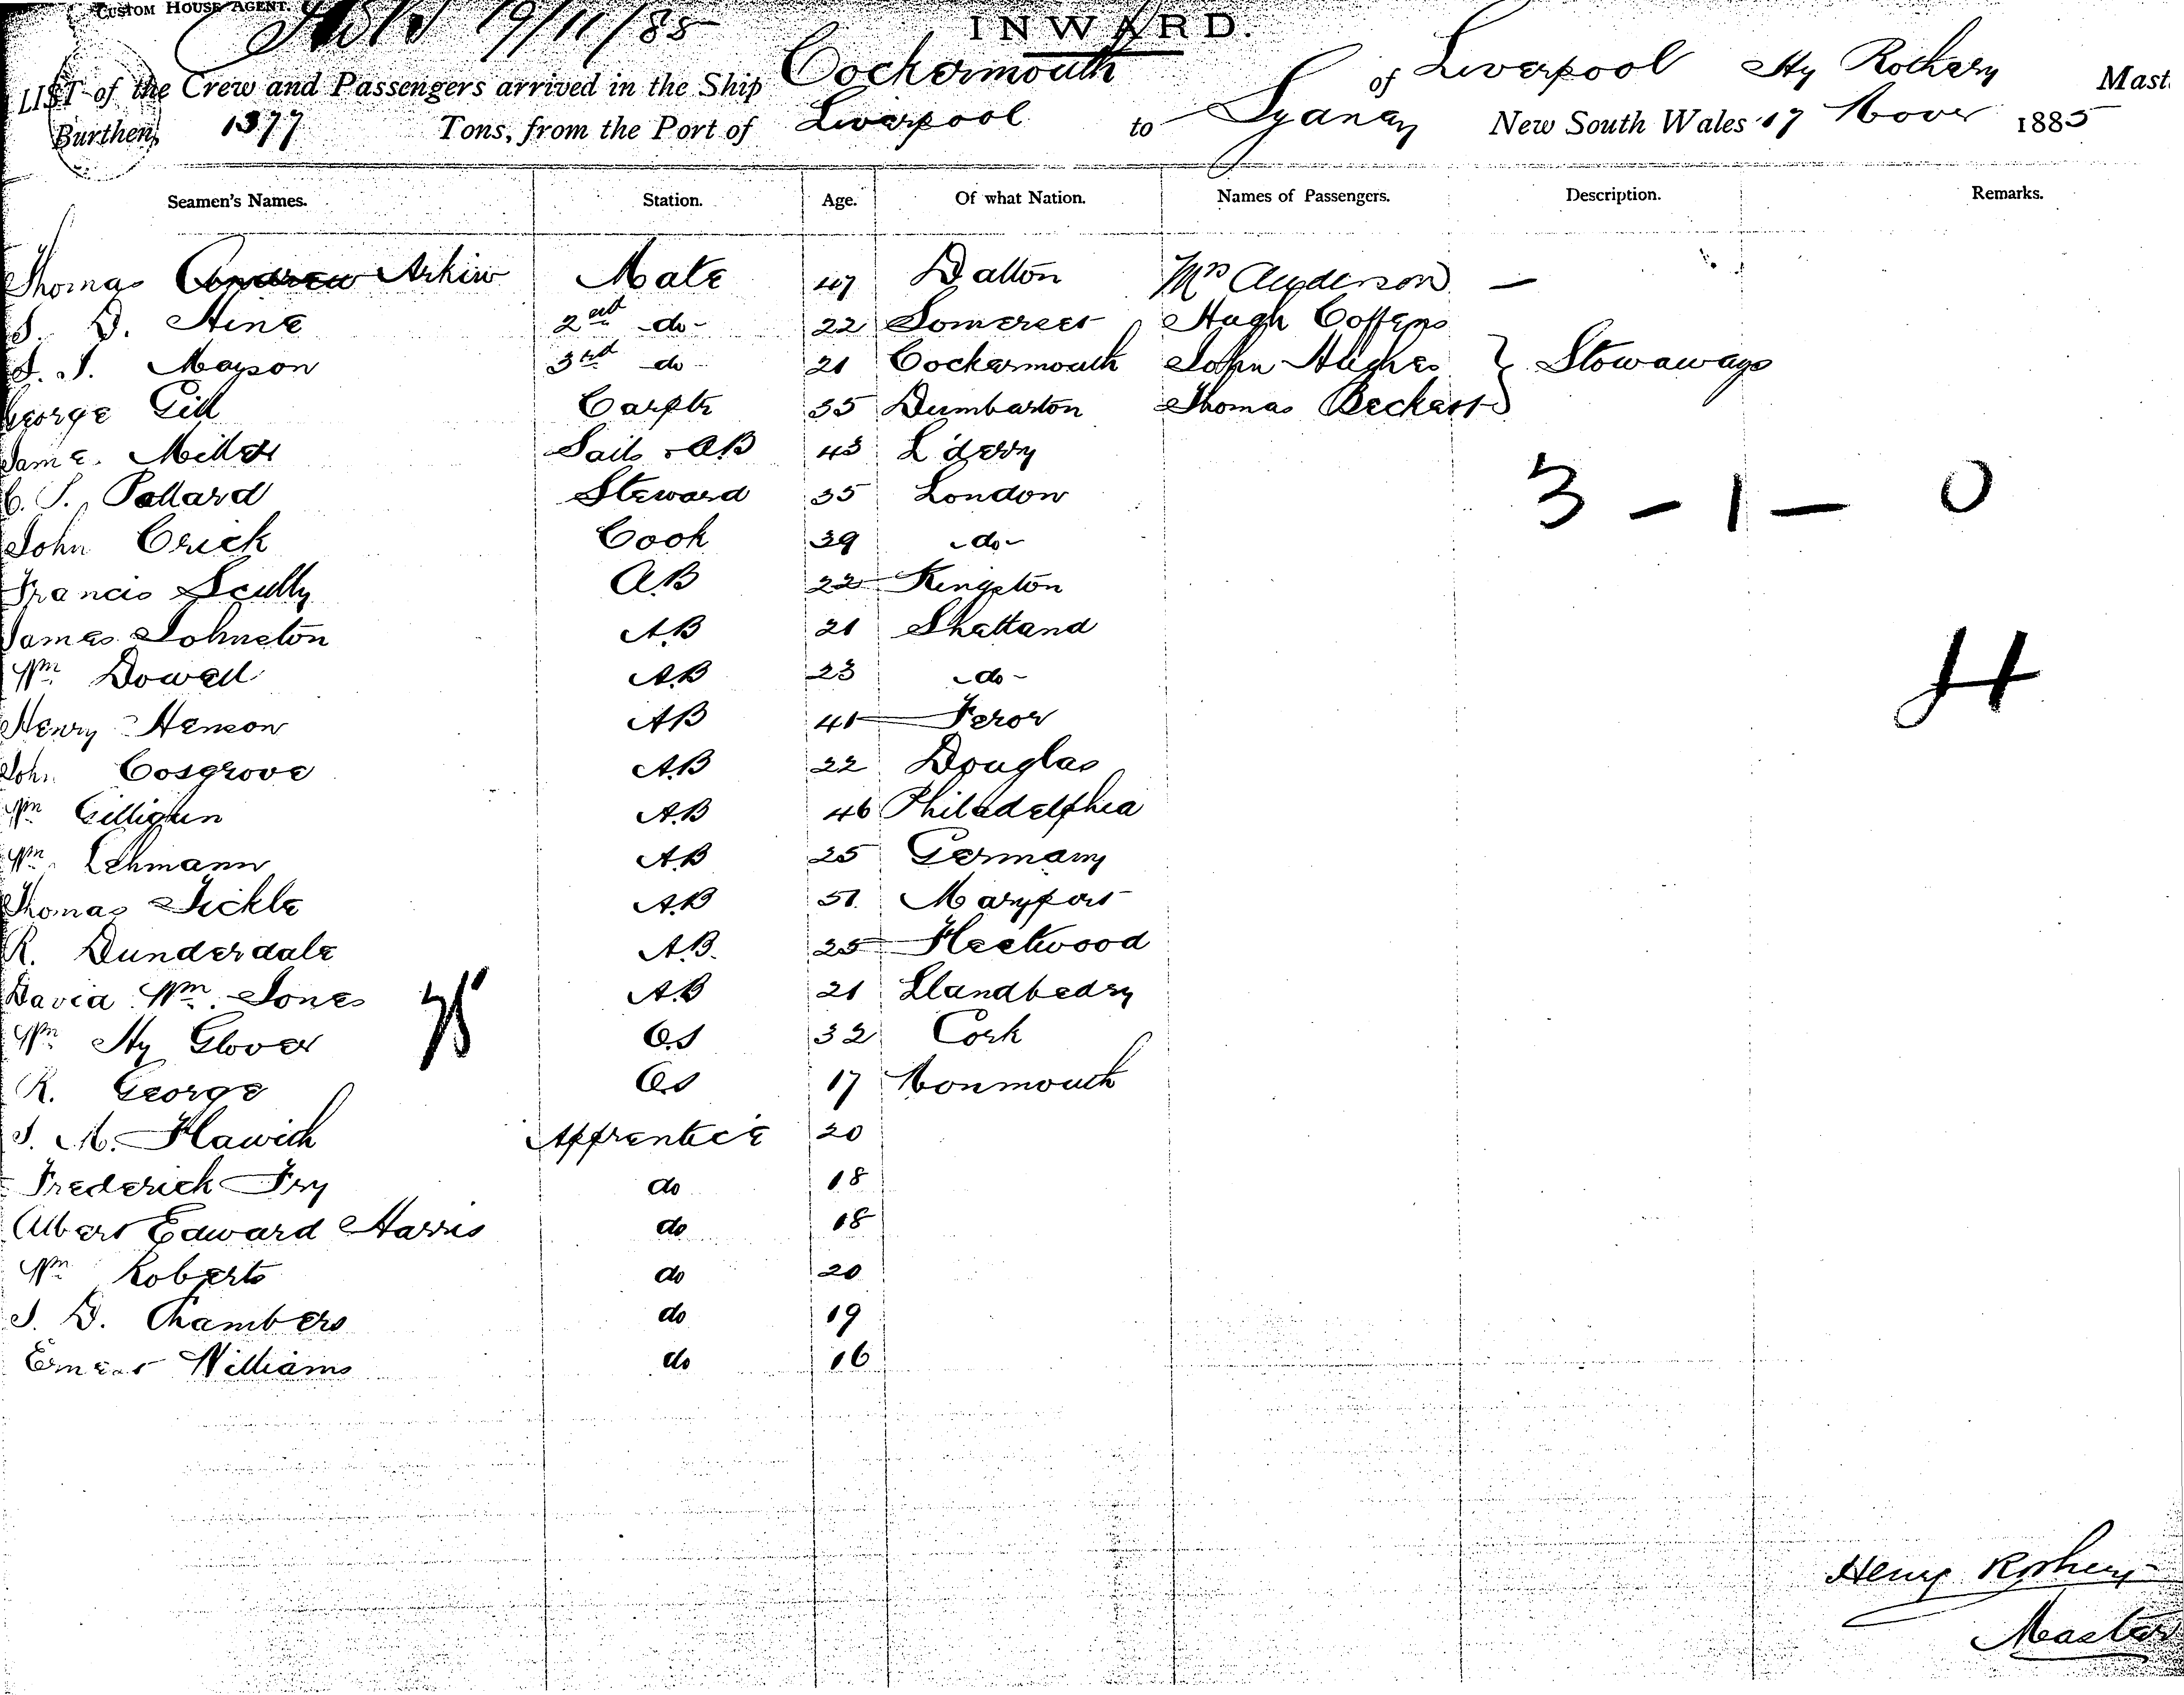 CUSTOM HOUSE AGENT.
19/11/85
INWARD.
LIST of the Crew and Passengers arrived in the Ship Cockermouth of Liverpool Hy Rothery Mast
Burthen, 1377 Tons, from the Port of Liverpool to Sydney New South Wales 17 Novr 1885
Seamen's Names. Station. Age. Of what Nation. Names of Passengers. Description. Remarks.
Thomas Andrew Arkiw Mate 47 Dalton Mrs Anderson —
J. D. Hine 2nd do 22 Somerset Hugh Coffens
J. J. Mayson 3rd do 21 Cockermouth John Hughes } Stowaways
George Gill Carptr 35 Dumbarton Thomas Beckett
Jame. Miller Sails & AB 43 L'derry
C. J. Pollard Steward 35 London
3 - 1 - 0
John Crick Cook 39 - do -
Francis Scully AB 22 Kingston
James Johnston AB 21 Shetland
H
Wm Dowell AB 23 - do -
Henry Henson AB 41 Feror
John Cosgrove AB 22 Douglas
Wm Gilligan AB 46 Philadelphia
Wm Lehmann AB 25 Germany
Thomas Tickle AB 51 Maryport
R. Dunderdale AB 25 Fleetwood
David Wm Jones AB 21 Llandbedry
Wm Hy Glover OS 32 Cork
R. George OS 17 Monmouth
J. M. Hawith Apprentice 20
Frederick Fry do 18
Albert Edward Harris do 18
Wm Roberts do 20
J. D. Chambers do 19
Ernest Williams do 16
Henry Rothery
Master